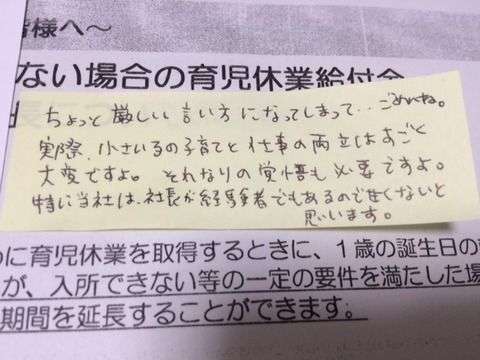 皆様へ〜
ない場合の育児休業給付金
ちょっと厳しい言い方になってしまって…ごめんね。
実際、小さい子の子育てと仕事の両立はすごく
大変ですよ。それなりの覚悟も必要ですよ。
特に当社は、社長が経験者でもあるので甘くないと
思います。
に育児休業を取得するときに、1歳の誕生日の
が、入所できない等の一定の要件を満たした場
期間を延長することができます。